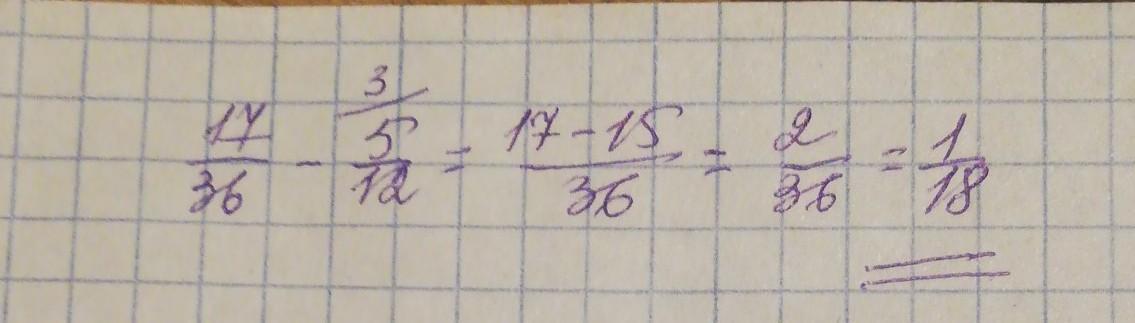 17/36 - 3/ 5/12 = 17-15/36 = 2/36 = 1/18